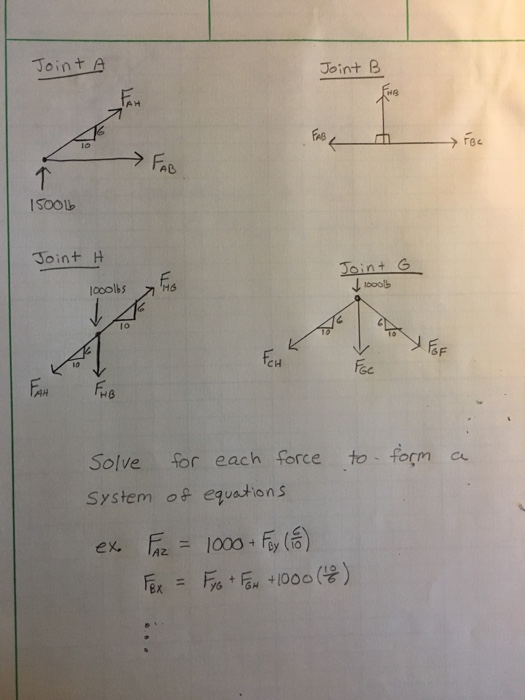 Joint A
F_AH
6
10
F_AB
1500lb
Joint B
F_HB
F_AB
F_BC
Joint H
1000lbs
F_HG
6
10
6
10
F_AH
F_HB
Joint G
1000lb
6
10
6
10
F_CH
F_GC
F_GF
Solve for each force to form a
System of equations
ex. F_AZ = 1000 + F_By (6/10)
F_BX = F_YG + F_GH + 1000 (10/6)
⋮